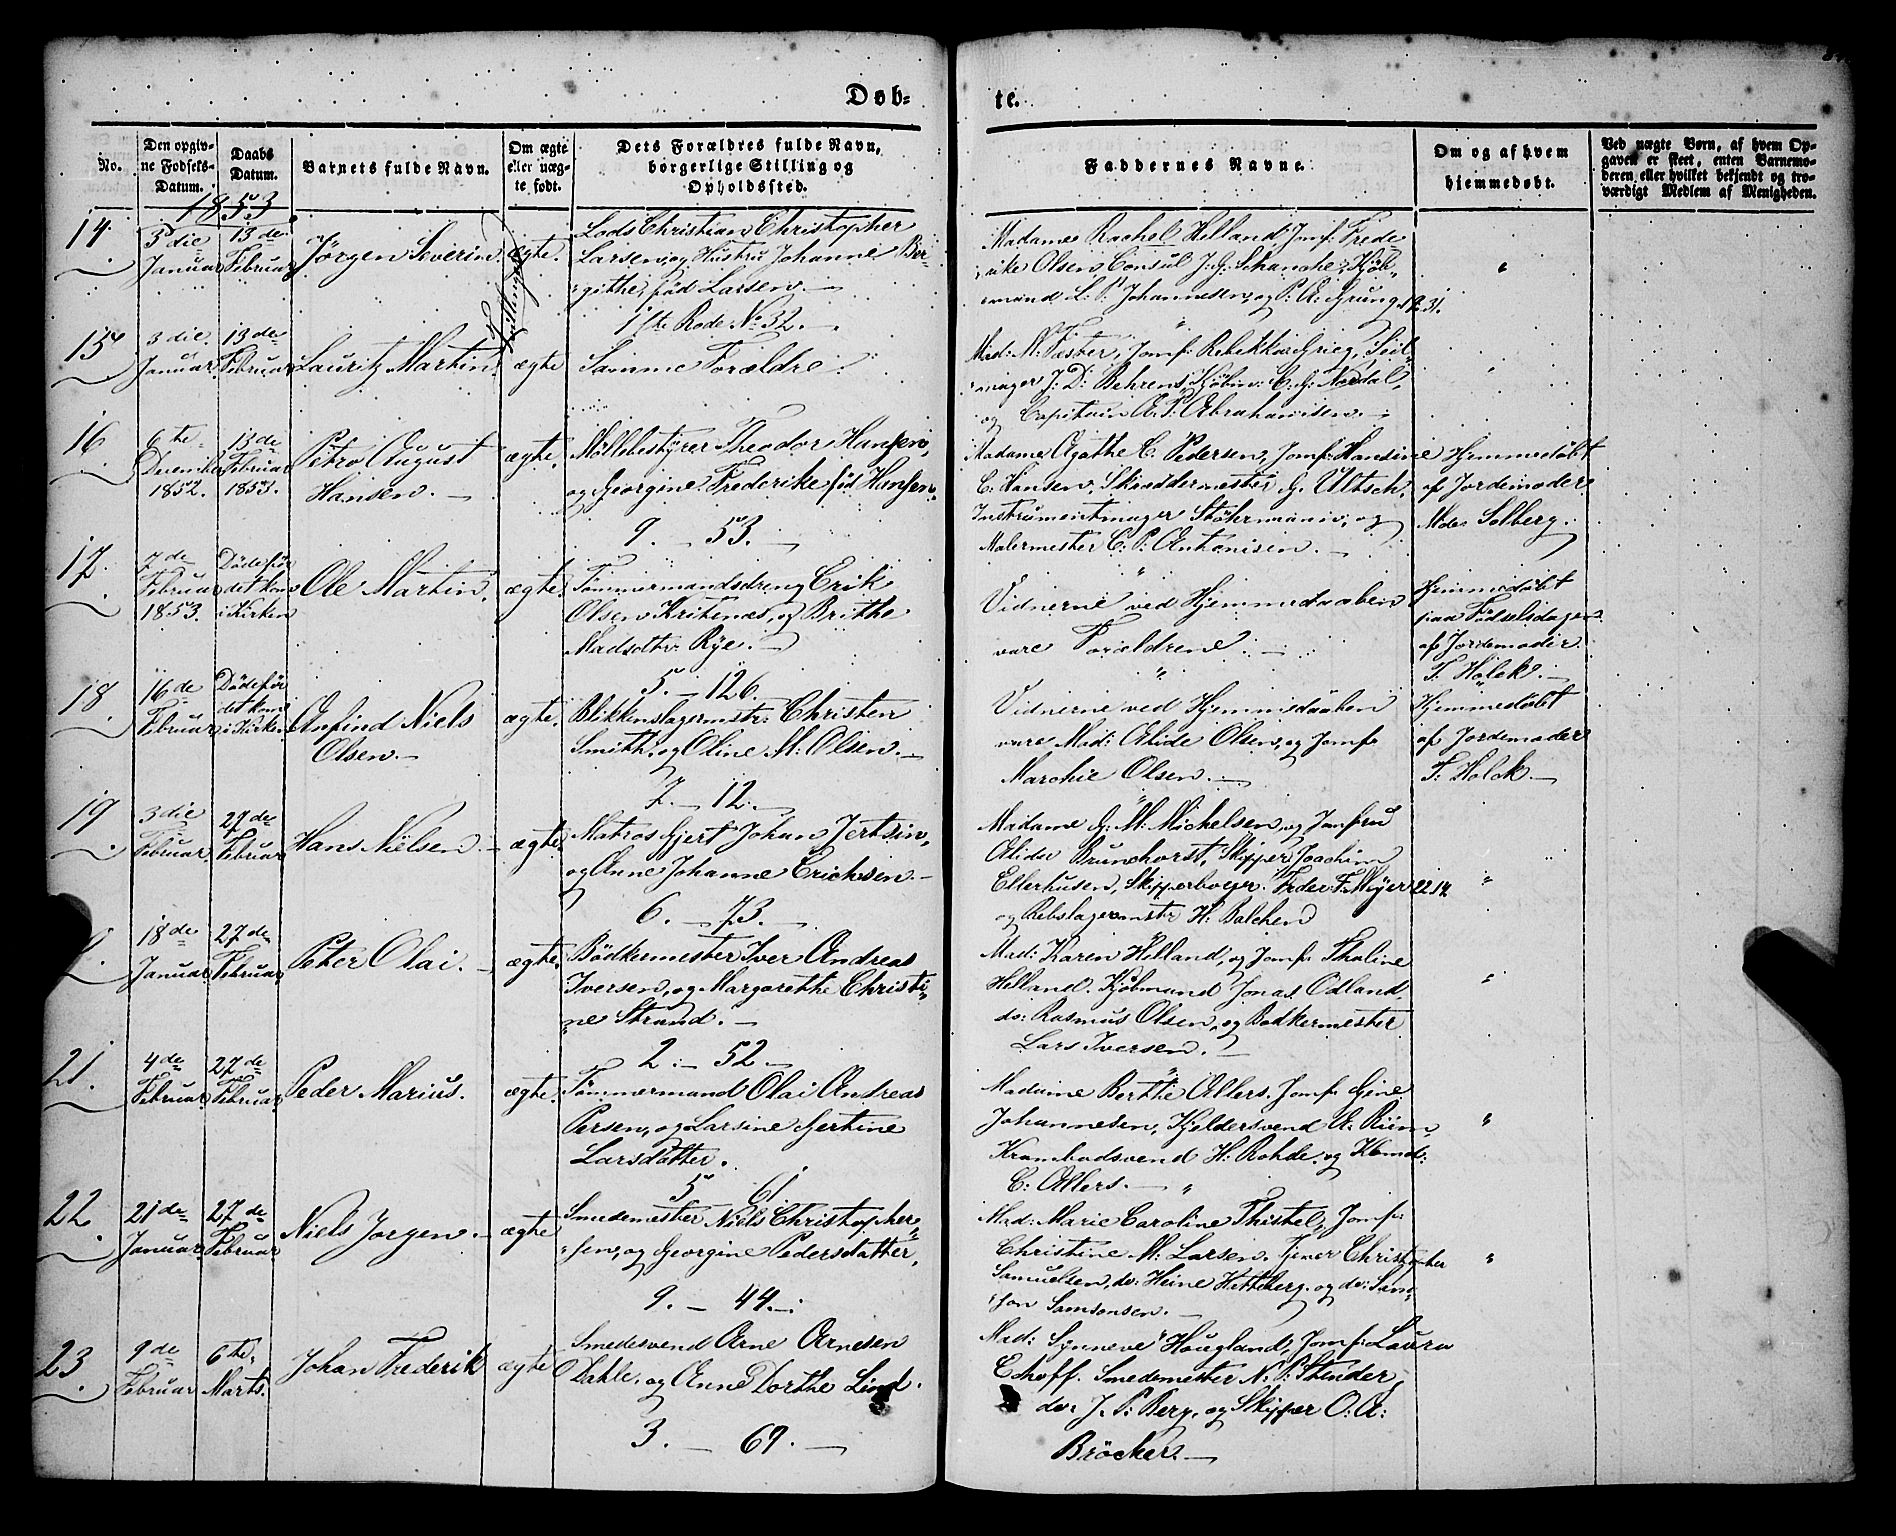 Døb-
te.
No.
Den opgiv-
ne Fødsels-
Datum.
Daabs
Datum.
Barnets fulde Navn.
Om ægte
eller uæg-
te født.
Dets Forældres fulde Navn,
borgerlige Stilling og
Opholdssted.
Faddernes Navne.
Om og af hvem
hjemmedøbt.
Ved uægte Børn, af hvem Op-
gaven er skeet, enten Barnemo-
deren eller hvilket bekjendt og tro-
værdigt Medlem af Menigheden.
1853
14.
3die
Januar
13de
Februar
Jørgen Severin
Tvillinger
ægte.
Lods Christian Christopher
Larsen, og Hustru Johanne Bir-
githe, fød Larsen.
1ste Rode No 32.
Madame Rachel Helland, Jomf: Frede-
rike Olsen, Consul J. G. Schanche, Kjøb-
mand L. P. Johannesen, og P. A. Grung.
15.
3die
Januar.
13de
Februar
Lauritz Martin.
ægte
Samme Forældre.
Mad: M. Fæster, Jomf: Rebekka Grieg, Seil-
mager J: D: Behrens, Kjøbm: C. G. Nordal,
og Capitain A. P. Abrahamsen.
16
6te
Decemb.
1852.
13de
Februar
1853.
Petro August
Hansen.
ægte.
Møllebestyrer Theodor Hansen,
og Georgine Frederike fød Hansen.
9. 53.
Madame Agathe C. Pedersen, Jomf: Hansine
C: Hansen, Skræddermester G. Ultsch,
Instrumentmager Støhrmann, og
Malermester C. P. Antonisen.
Hjemmedøbt
af Jordemoder
Mde Solberg.
17.
7de
Februar
1853.
Døde før
det kom
i Kirken
Ole Martin.
ægte.
Tømmermandsdreng Erik
Olsen Kritenæs, og Brithe
Madsdtr. Rye.
Vidnerne ved Hjemmedaaben
vare Forældrene.
Hjemmedøbt
paa Fødselsdagen
af Jordemoder
T. Holck.
5. 126.
18
16de
Februar
Døde før
det kom
i Kirken
Anfind Niels
Olsen.
ægte.
Blikkenslagermstr: Christen
Smith, og Oline M: Olsen.
7. 12.
Vidnerne ved Hjemmedaaben
vare Mad: Alide Olsen, og Jomf:
Marchie Olsen.
Hjemmedøbt
af Jordemoder
T. Holck.
19
3die
Februar.
27de
Februar
Hans Nielsen.
ægte
Matros Gjert Johan Jertsin,
og Anne Johanne Erichsen.
6. 73.
Madame G. M. Michelsen, og Jomfru
Alida Brunchorst, Skipper Joachim
Ellerhusen, Skipperborger Fredr. F. Meyer
og Rebslagermstr H. Balchen
18de
Januar
27de
Februar
Peter Olai.
ægte.
Bødkermester Iver Andreas
Iversen, og Margarethe Christi-
ne Strand.
2. 52
Mad: Karen Helland, og Jomf: Thaline
Helland. Kjøbmand Jonas Odland,
do: Rasmus Olsen, og Bødkermester
Lars Iversen.
21.
4de
Februar.
27de
Februar
Peder Marius.
ægte.
Tømmermand Olai Andreas
Persen, og Larsine Gertine
Larsdatter.
5 61
Madame Berthe Allers, Jomf: Gine
Johannesen, Kjeldersvend A. Riim,
Krambodsvend H. Rohde, og Kbmd:
C: Allers.
22.
21de
Januar.
27de
Februar
Niels Jørgen.
ægte
Smedemester Niels Christopher-
sen, og Georgine Pedersdatter,
9. 44.
Mad: Marie Caroline Thistel, Jomf:
Christine M: Larsen, Tjener Christopher
Samuelsen, do: Heine Hetleberg, og do: Sam-
son Samsonsen.
23
9de
Februar
6te
Marts.
Johan Frederik
ægte
Smedesvend Arne Arnesen
Dahle, og Anne Dorthe Lind.
3. 69.
Mad: Synneve Hougland, Jomf: Laura
Echoff. Smedemester N. P. Stender,
do: J. P. Berg, og Skipper O: A:
Brøcker.